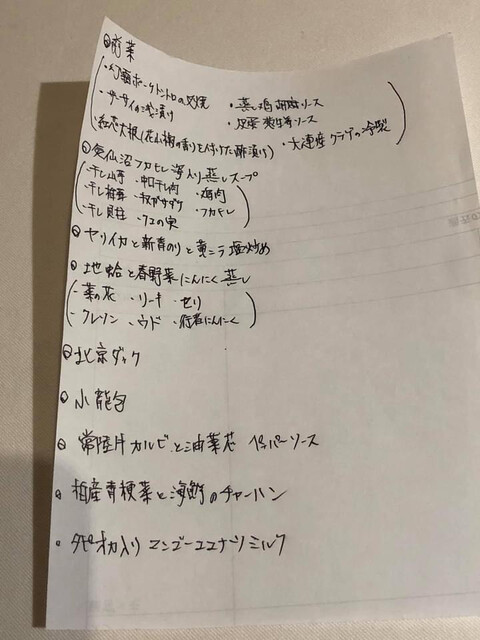 前菜
・幻霜ポークトントロの叉焼 ・蒸し鶏 胡麻ソース
・ザーサイの浅漬け ・皮蛋 ソース
・紅芯大根(花山椒の香りを付けた酢漬け) ・大連産クラゲの冷製
気仙沼フカヒレ 入り蒸しスープ
・干し山芋 ・中口干し肉 ・鶏肉
・干し椎茸 ・キヌガサダケ ・フカヒレ
・干し貝柱 ・クコの実
ヤリイカと新青のりと黄ニラ 塩炒め
地蛤と春野菜にんにく蒸し
・菜の花 ・リーキ ・セリ
・クレソン ・ウド ・行者にんにく
北京ダック
小龍包
常陸牛カルビと油菜芯 ペッパーソース
柏産青梗菜と海鮮のチャーハン
タピオカ入りマンゴーココナツミルク